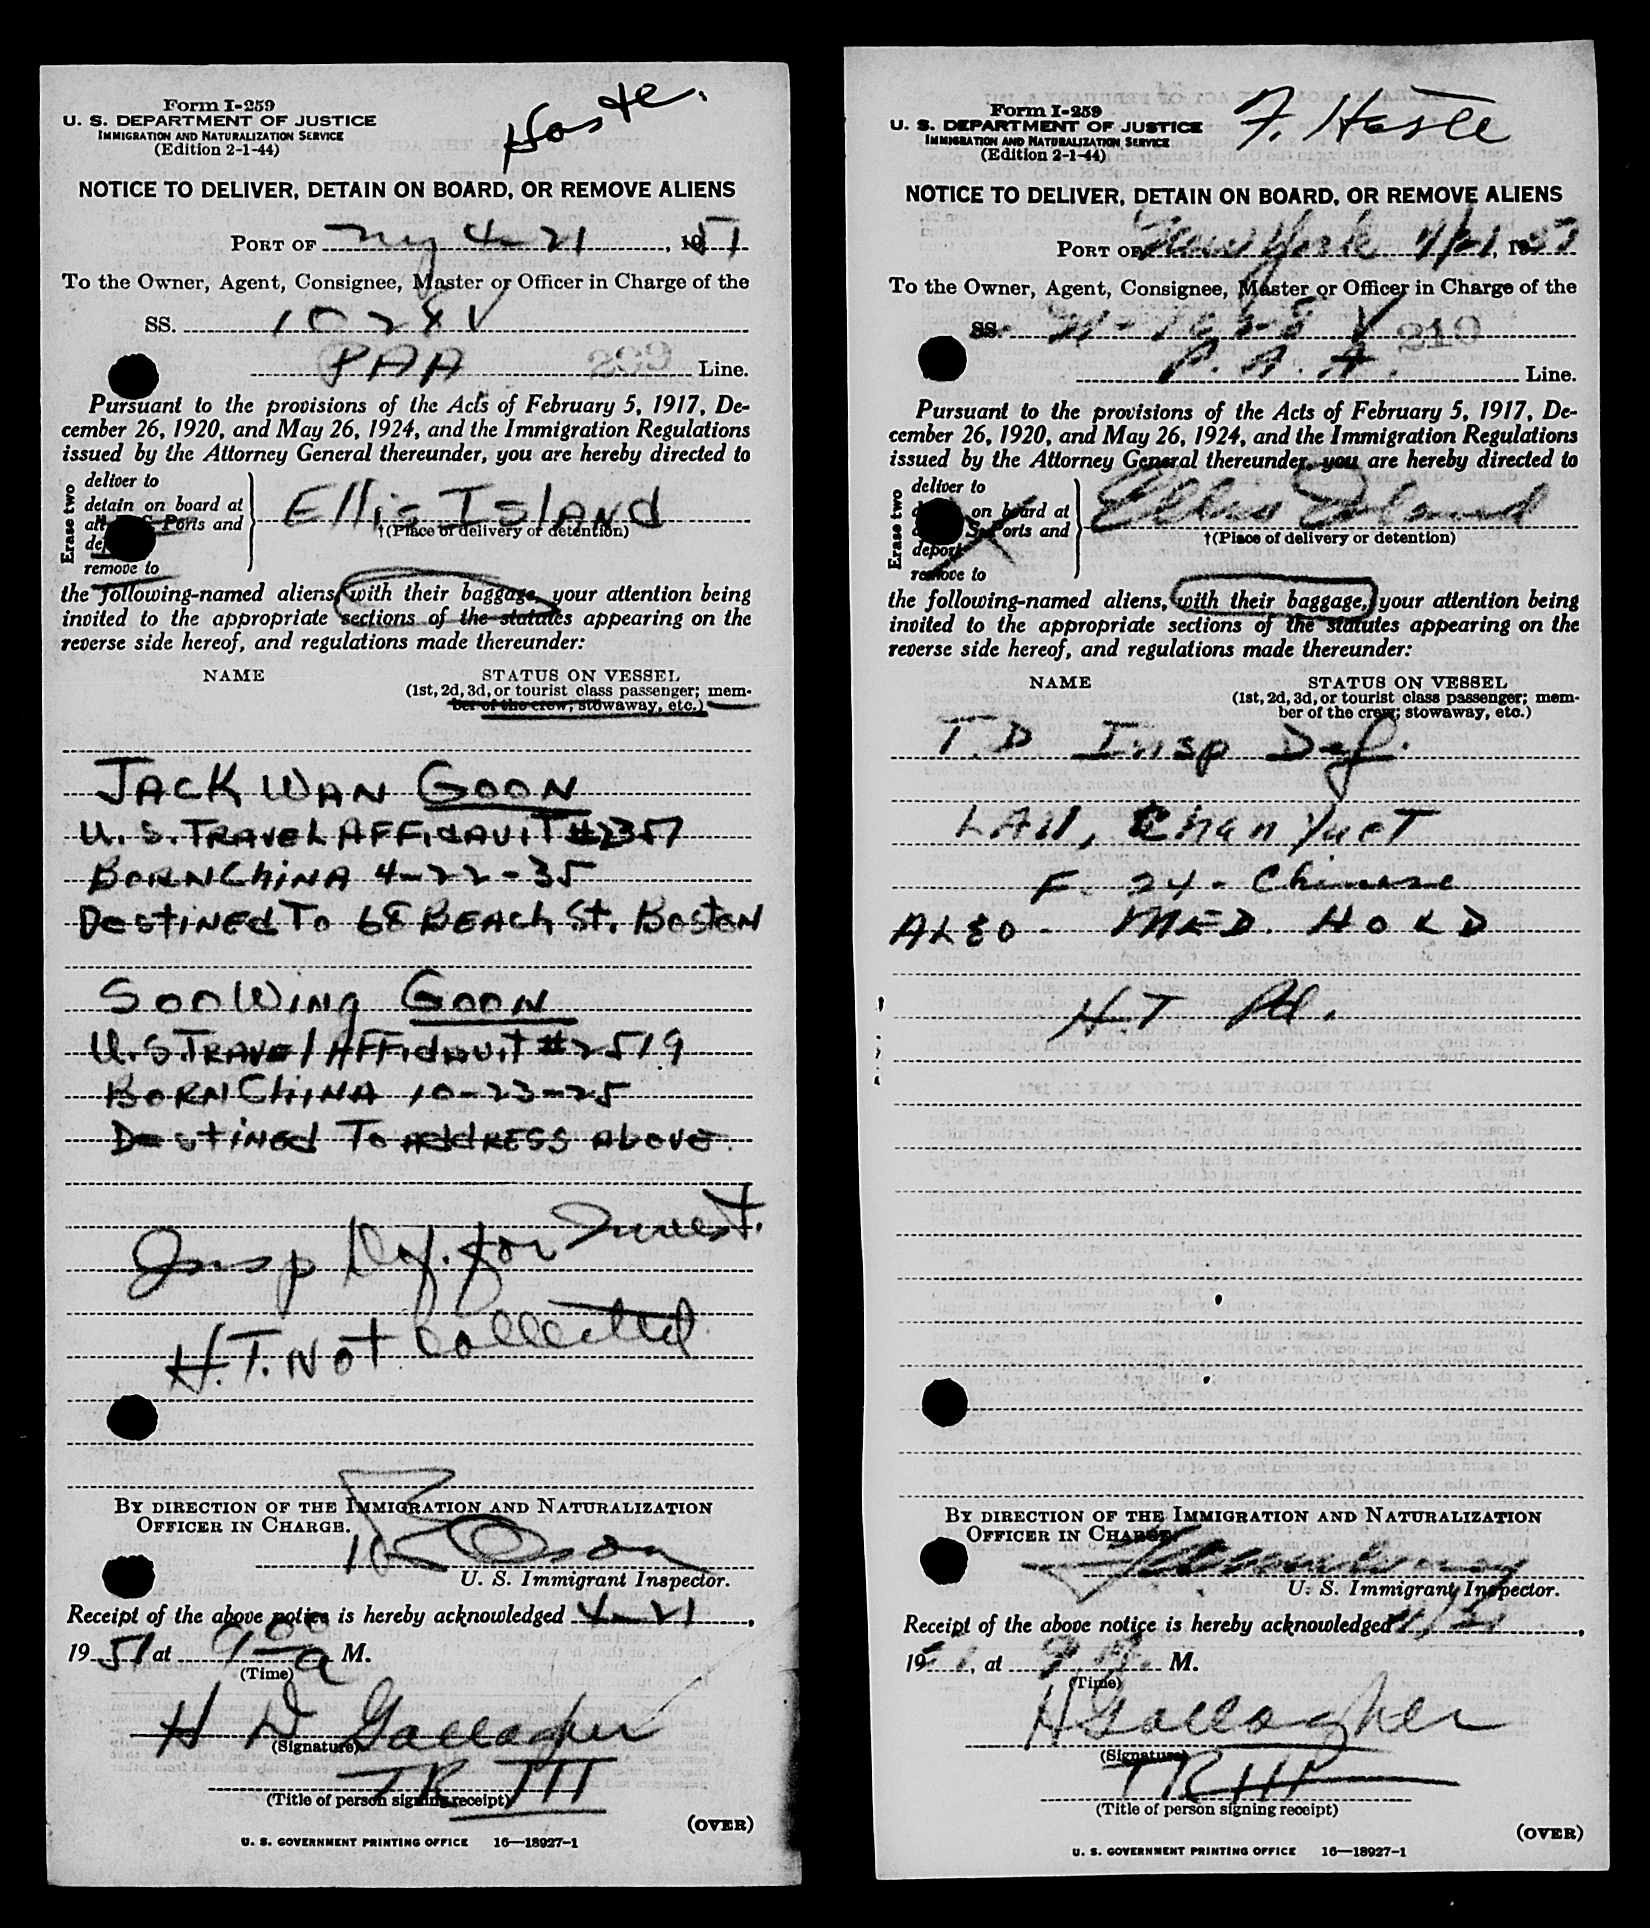 Form I-259
U. S. DEPARTMENT OF JUSTICE
IMMIGRATION AND NATURALIZATION SERVICE
(Edition 2-1-44)
NOTICE TO DELIVER, DETAIN ON BOARD, OR REMOVE ALIENS
PORT OF NY 4-21, 1951
To the Owner, Agent, Consignee, Master or Officer in Charge of the
SS. 1028V
PAA 209 Line.
Pursuant to the provisions of the Acts of February 5, 1917, De-
cember 26, 1920, and May 26, 1924, and the Immigration Regulations
issued by the Attorney General thereunder, you are hereby directed to
Erase two
deliver to
detain on board at
all Ports and
remove to
Ellis Island
†(Place of delivery or detention)
the following-named aliens, with their baggage, your attention being
invited to the appropriate sections of the statutes appearing on the
reverse side hereof, and regulations made thereunder:
NAME
STATUS ON VESSEL
(1st, 2d, 3d, or tourist class passenger; mem-
ber of the crew; stowaway, etc.)
JACK WAN GOON
U. S. TRAVEL AFFIdAVIT #2357
BORN ChiNA 4-22-35
DestiNEd To 68 BEACh St. BostoN
SOO WiNg GOON
U.S. TRAVEl AFFidAVit #2519
BORN ChiNA 10-23-25
DestiNEd To AddRESS AbovE.
Insp Def. for Invest.
H.T. Not Collected
BY DIRECTION OF THE IMMIGRATION AND NATURALIZATION
OFFICER IN CHARGE.
U. S. Immigrant Inspector.
Receipt of the above notice is hereby acknowledged 4-21,
19 51 at 9 00 a M.
(Time)
H D Gallagher
(Signature)
TR
(Title of person signing receipt)
(OVER)
U. S. GOVERNMENT PRINTING OFFICE 16—18927-1
Form I-259
U. S. DEPARTMENT OF JUSTICE
IMMIGRATION AND NATURALIZATION SERVICE
(Edition 2-1-44)
NOTICE TO DELIVER, DETAIN ON BOARD, OR REMOVE ALIENS
PORT OF New York 4/21, 1951
To the Owner, Agent, Consignee, Master or Officer in Charge of the
SS. N-1028 V 210
P. A. A. Line.
Pursuant to the provisions of the Acts of February 5, 1917, De-
cember 26, 1920, and May 26, 1924, and the Immigration Regulations
issued by the Attorney General thereunder, you are hereby directed to
Erase two
deliver to
on board at
S. Ports and
deport
remove to
Ellis Island
†(Place of delivery or detention)
the following-named aliens, with their baggage, your attention being
invited to the appropriate sections of the statutes appearing on the
reverse side hereof, and regulations made thereunder:
NAME
STATUS ON VESSEL
(1st, 2d, 3d, or tourist class passenger; mem-
ber of the crew; stowaway, etc.)
T.D Insp Def.
LAU, Chan Yuet
F. 24 - Chinese
ALSO - MED. HOLD
H.T Pd.
BY DIRECTION OF THE IMMIGRATION AND NATURALIZATION
OFFICER IN CHARGE.
U. S. Immigrant Inspector.
Receipt of the above notice is hereby acknowledged 4/21,
1951, at 9 M.
(Time)
H Gallagher
(Signature)
TR
(Title of person signing receipt)
(OVER)
U. S. GOVERNMENT PRINTING OFFICE 16—18927-1